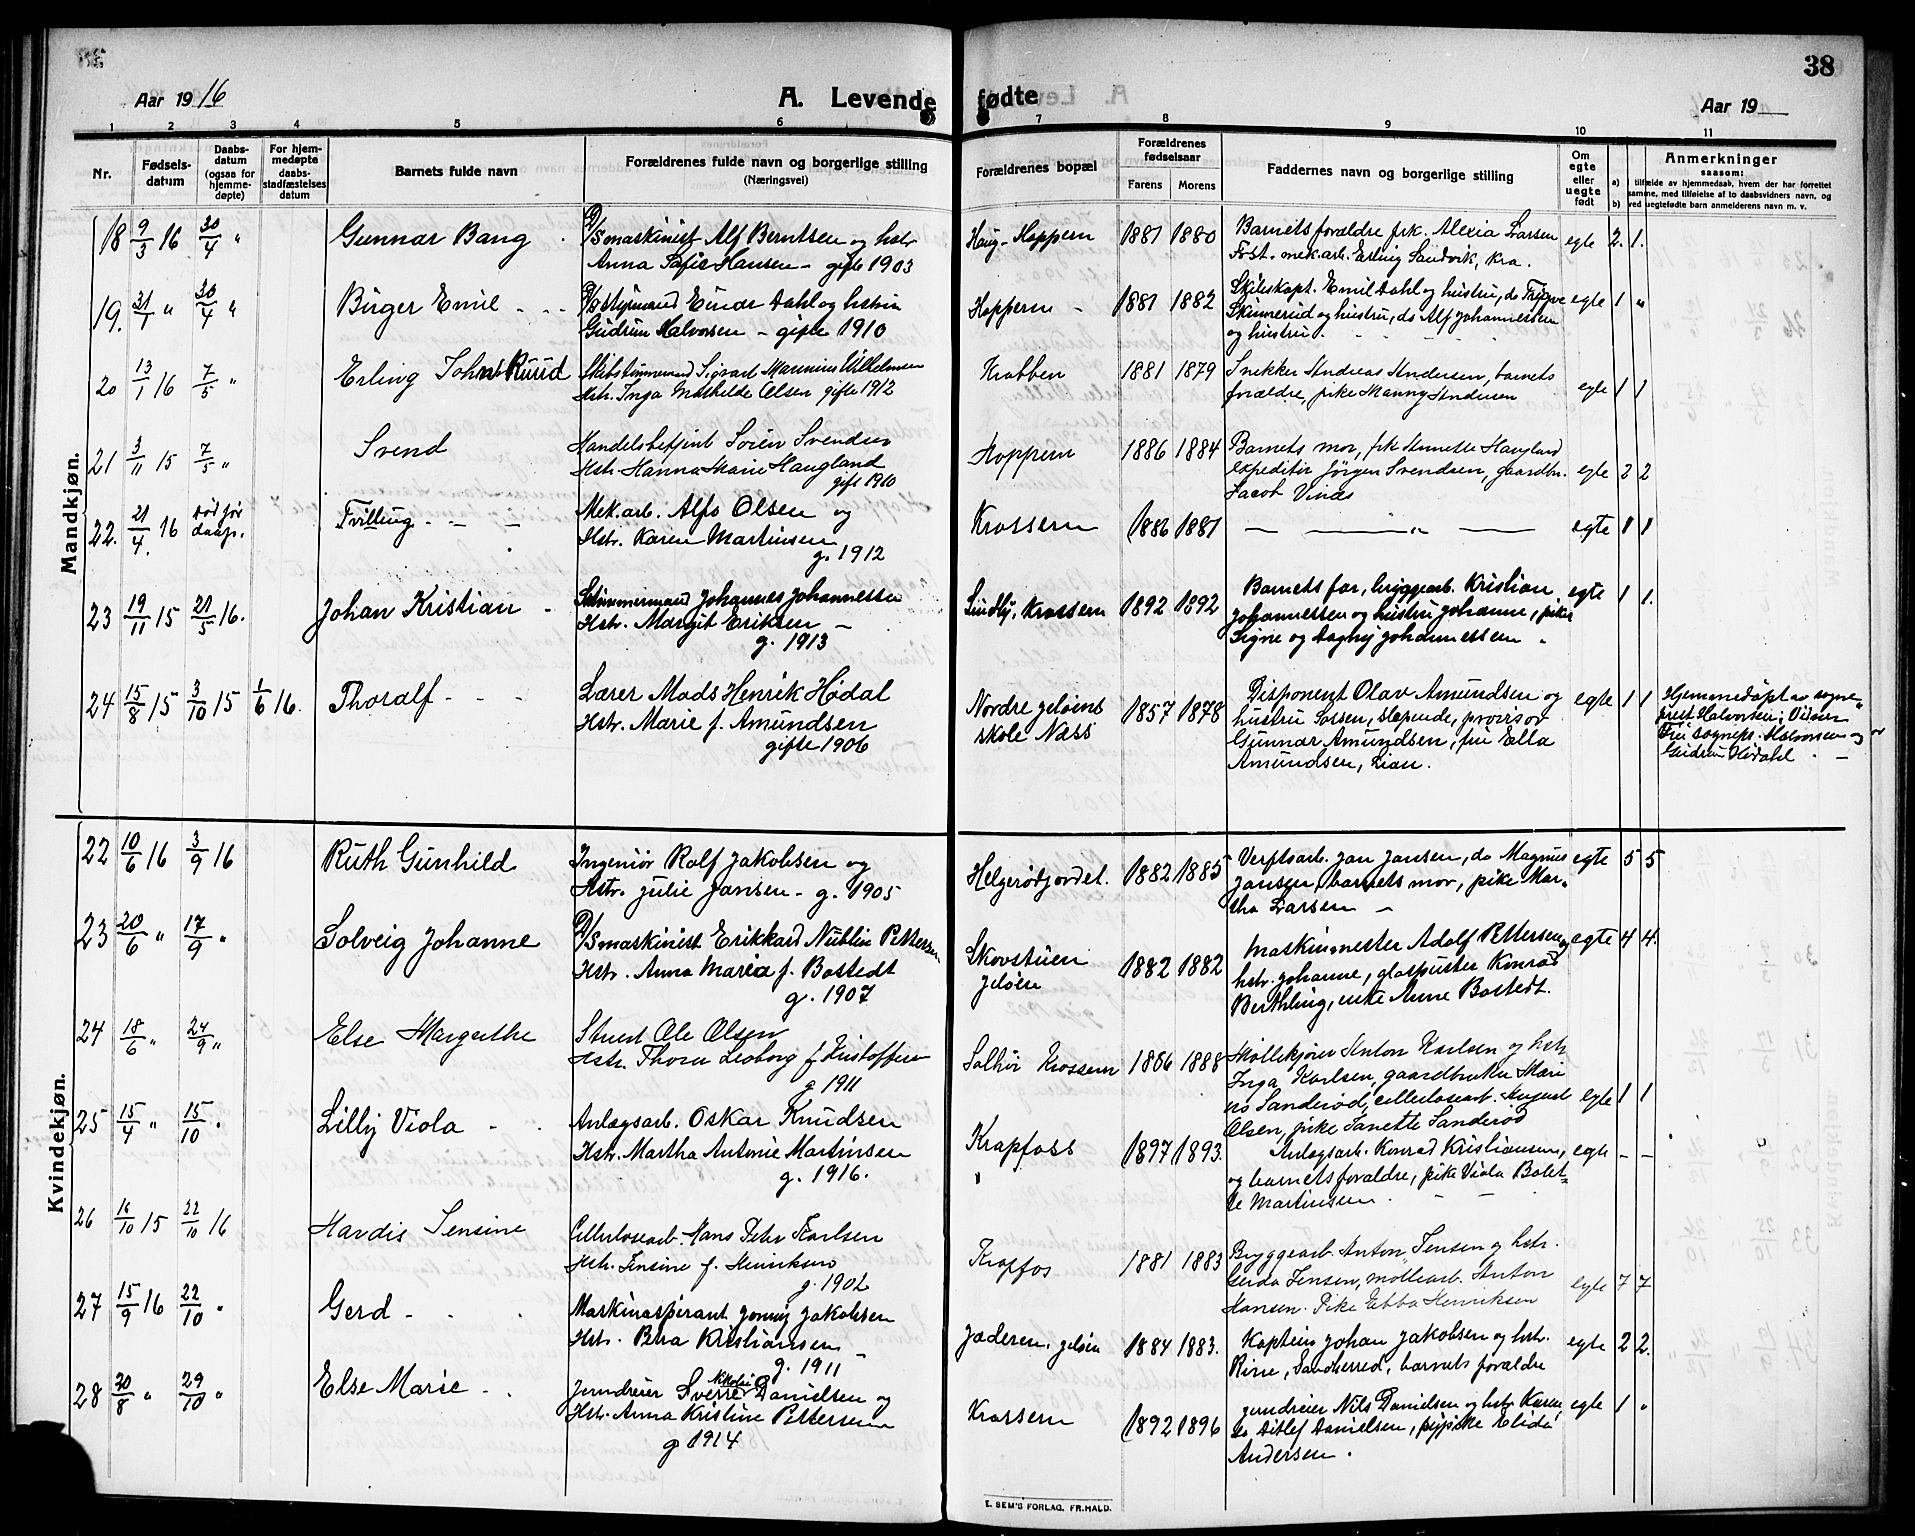 38
Aar 1916
A. Levende fødte
Aar 19
1 2 3 4 5 6 7 8 9 10 11
Nr.
Fødsels-
datum
Daabs-
datum
(ogsaa for
hjemme-
døpte)
For hjem-
medøpte
daabs-
stadfæstelses
datum
Barnets fulde navn
Forældrenes fulde navn og borgerlige stilling
(Næringsvei)
Forældrenes bopæl
Forældrenes
fødselsaar
Farens Morens
Faddernes navn og borgerlige stilling
Om
egte
eller
uegte
født
Anmerkninger
saasom:
a) I tilfælde av hjemmedaab, hvem der har forrettet
samme, med tilføielse af to daabsvidners navn, og
b) ved uegtefødte barn anmelderens navn m. v.
Mandkjøn.
18 9/3 16 30/4 "
Gunnar Bang
D/S maskinist Alf Berntsen og hstr.
Anna Sofie Hansen - gifte 1903
Haug - Hoppern 1881 1880
Barnets foræld­re frk. Alexia Larsen
Fost. mek.arb. Erling Sandvik, Kra.
egte 2. 1.
19. 31/1 " 30/4 "
Birger Emil
D/S styrmand Einar Dahl og hstru
Gudrun Halvorsen - gifte 1910
Hoppern - 1881 1882
Skibskapt. Emil Dahl og hustru, do Trygve
Skinnerud og hustru, do Alf Johannessen
og hustru.
egte 1 "
20 13/1 16 7/5 "
Erling John Ruud
Skibstømmermand Sigvart Marinius Vilhelmsen
Hstr. Inga Mathilde Olsen gifte 1912
Krabben 1881 1879
Snekker Andreas Andersen, barnets
forældre, pike Nanny Andersen
egte 1 1
21 3/11 15 7/5 "
Svend
Handelsbetjent Søren Svendsen
Hstr. Hanna Marie Haugland
gift 1910
Hoppern 1886 1884
Barnets mor, frk Annette Haugland
expeditør Jørgen Svendsen, gaardbr.
Jacob Vinæs
egte 2 2
22. 21/4 16 død før
daap.
Tvilling - - -
Mek.arb. Alfs Olsen og
Hstr. Karen Martinsen
g. 1912
Krossern 1886 1881
— " —
egte 1 1
23 19/11 15 21/5 16.
Johan Kristian -
Stømmermand Johannes Johannessen
Hstr. Margit Eriksen -
g. 1913
Lundby, Krossern 1892 1892
Barnets far, bryggearb. Kristian
Johannessen og hustru Johanne, pike
Signe og Dagny Johannessen "
egte 1 1.
24 15/8 15 3/10 15 1/6 16.
Thoralf - - -
Lærer Mads Henrik Hødal
Hstr. Marie f. Amundsen
gifte 1906
Nordre Jeløens
skole Næss
1857 1878
Disponent Olav Amundsen og
hustru Sossen, Slependen, provisor
Gunnar Amundsen, fru Ella
Amundsen, Lian.
egte 1 1
Hjemmedøpt av sogne-
prest Halvorsen; Vidner:
Fru sognepr. Halvorsen og
Gudrun Hødahl.
Kvindekjøn.
22 10/6 16 3/9 16
Ruth Gunhild
Ingeniør Rolf Jakobsen og
Hstr. Julie Jansen - g. 1905
Helgerødjordet. 1882 1885
Verftsarb. Jan Jansen, do Magnus
Jansen, barnets mor, pike Mar-
tha Larsen -
egte 5 5
23 20/6 " 17/9 "
Solveig Johanne
D/S maskinist Erikkard Nublin Pettersen
Hstr. Anna Maria f. Bostedt
g. 1907
Skovstuen
Jeløen
1882 1882
Maskinmester Adolf Pettersen og
hstr. Johanne, glaspuster Konrad
Berthling, enke Anne Bostedt.
egte 4 4.
24 18/6 " 24/9 "
Else Margrethe
Stuert Ole Olsen
Hstr. Thora Leoborg f. Kristoffersen
g. 1911
Solhøi Krossern 1886 1888
Møllekjører Anton Karlsen og hstr
Inga Karlsen, gaardbruker Mari
us Sanderød, cellulosearb. August
Olsen, pike Janette Sanderød
egte 1 1
25 15/4 " 15/10 "
Lilly Viola
Anlægsarb. Oskar Knudsen
Hstr. Martha Antonie Martinsen
g. 1916.
Krapfoss 1897 1893.
Anlægsarb. Konrad Kristiansen,
og barnets forældre, pike Viola Bolet-
te Martinsen.
egte - -
26 16/10 15 22/10 16
Hardis Jensine
Cellulosearb. Hans Petr Karlsen
Hstr. Jensine f. Henriksen
g. 1902
Krapfos 1881 1883
Bryggearb. Anton Jensen og hstr.
Gerda Jensen, møllearb. Anton
Hansen. Pike Ebba Henriksen
egte 7 7
27 15/9 16 22/10 "
Gerd -
Maskinaspirant Jonny Jakobsen
Hstr. Bera Kristiansen -
g. 1911
Jæderen, Jeløen 1884 1883.
Kaptein Johan Jakobsen og hstr.
Rine, Sandherred, barnets forældre
egte 2 2.
28 30/8 " 29/10 "
Else Marie
Jerndreier Sverre Nikolai Danielsen og
Hstr. Anna Kristine Pettersen
g 1914
Krossern 1892 1896
Jerndreier Nils Danielsen og hstr Karen,
do Ditlef Danielsen, pike Elida
Andersen.
egte 1 "
E. SEM'S FORLAG, FR.HALD.